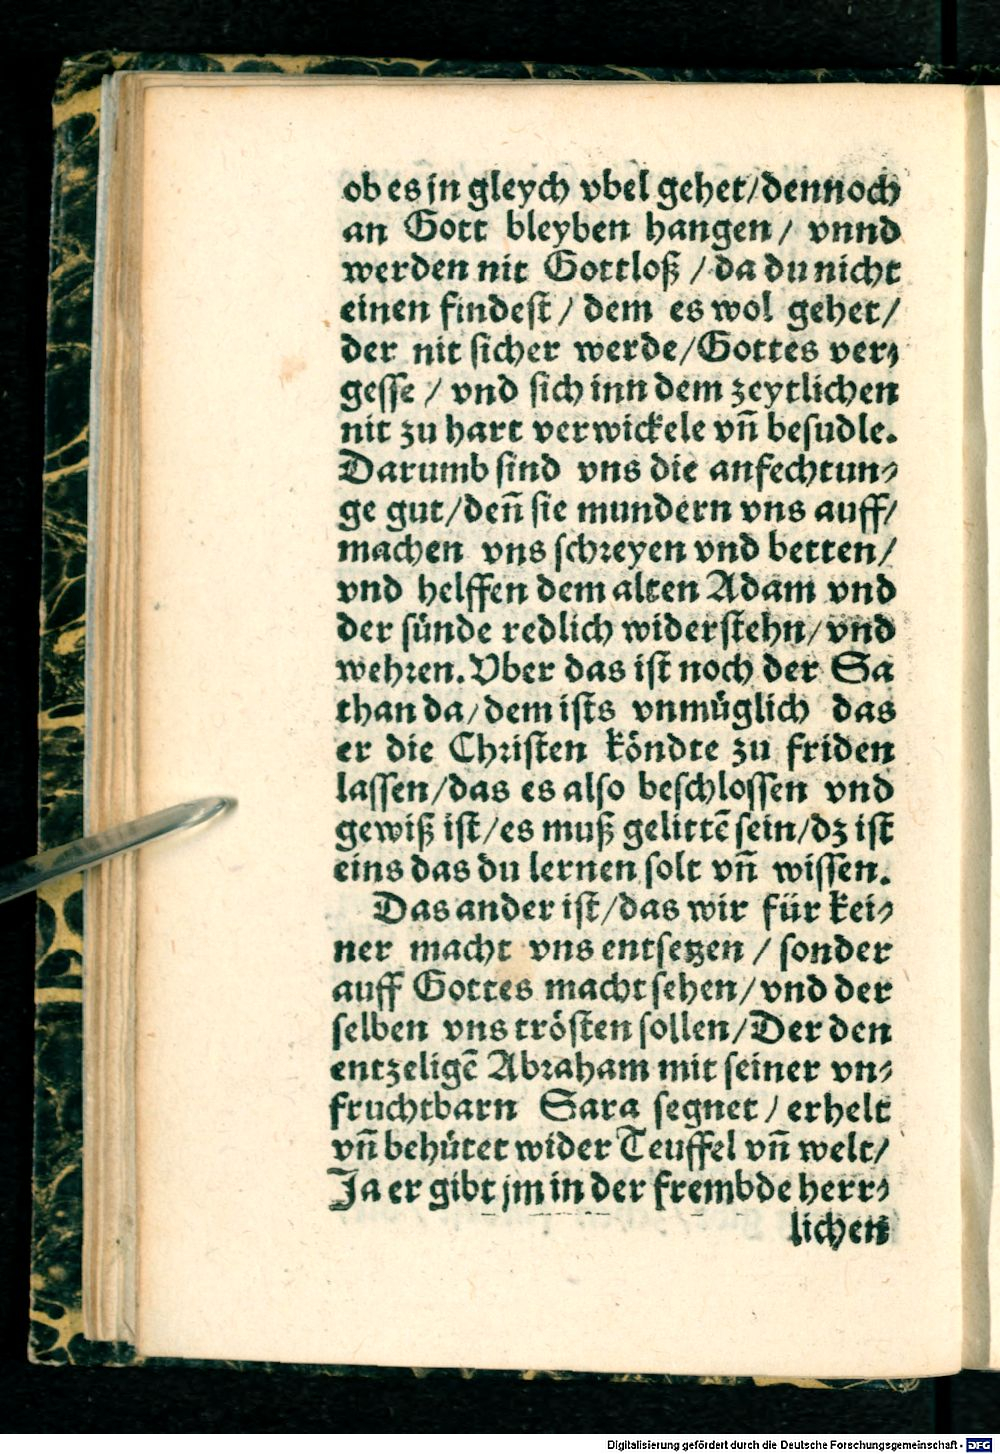 ob es jn gleych vbel gehet/dennoch
an Gott bleyben hangen/ vnnd
werden nit Gottloß /da du nicht
einen findest/ dem es wol gehet/
der nit sicher werde/Gottes ver⸗
gesse / vnd sich inn dem zeytlichen
nit zu hart verwickele vn̄ besudle.
Darumb sind vns die anfechtun⸗
ge gut/den̄ sie mundern vns auff/
machen vns schꝛeyen vnd betten/
vnd helffen dem alten Adam vnd
der sünde redlich widerstehn/vnd
wehꝛen. Vber das ist noch der Sa
than da/dem ists vnmüglich das
er die Chꝛisten köndte zu friden
lassen/das es also beschlossen vnd
gewiß ist/es muß gelittē sein/dz ist
eins das du lernen solt vn̄ wissen.
Das ander ist/das wir für kei⸗
ner macht vns entsetzen / sonder
auff Gottes macht sehen/vnd der
selben vns trösten sollen/Der den
entzeligē Abꝛaham mit seiner vn⸗
fruchtbarn Sara segnet/ erhelt
vn̄ behütet wider Teuffel vn̄ welt/
Ja er gibt jm in der frembde herr⸗
lichen
Digitalisierung gefördert durch die Deutsche Forschungsgemeinschaft - DFG